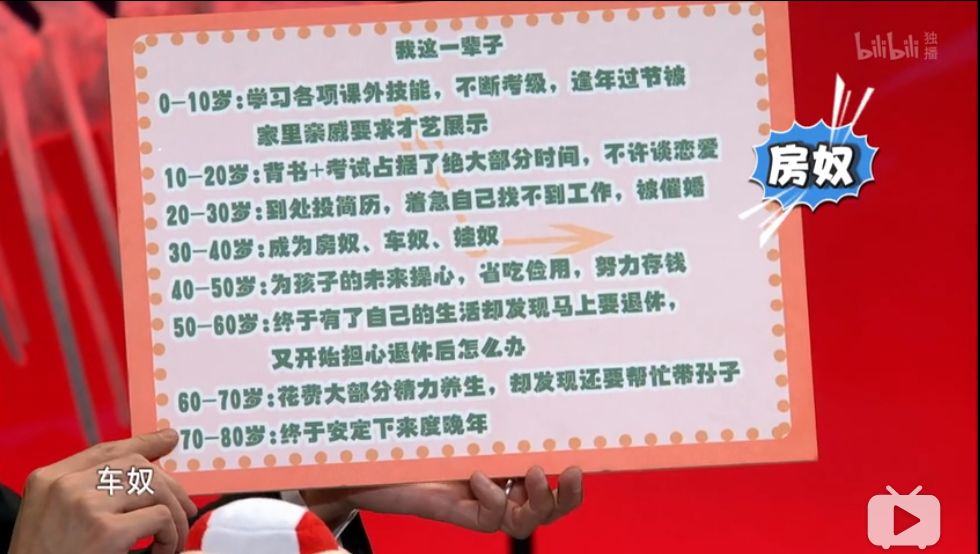 我这一辈子
0-10岁:学习各项课外技能，不断考级，逢年过节被
家里亲戚要求才艺展示
10-20岁:背书+考试占据了绝大部分时间，不许谈恋爱
20-30岁:到处投简历，着急自己找不到工作，被催婚
30-40岁:成为房奴、车奴、娃奴
40-50岁:为孩子的未来操心，省吃俭用，努力存钱
50-60岁:终于有了自己的生活却发现马上要退休，
又开始担心退休后怎么办
60-70岁:花费大部分精力养生，却发现还要帮忙带孙子
70-80岁:终于安定下来度晚年
bilibili 独播
房奴
车奴
bilibili